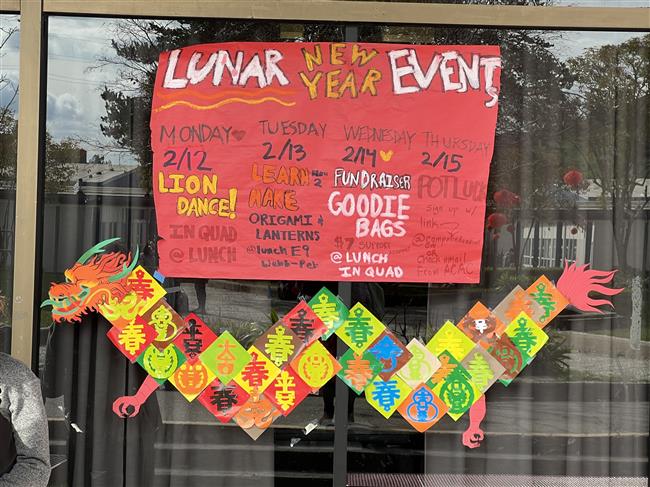 LUNAR NEW YEAR EVENTS
MONDAY
2/12
LION DANCE!
IN QUAD
@ LUNCH
TUESDAY
2/13
LEARN How 2
MAKE
ORIGAMI &
LANTERNS
@lunch E9
WEDNESDAY
2/14
FUNDRAISER
GOODIE
BAGS
$7
@ LUNCH
IN QUAD
THURSDAY
2/15
POTLUCK
sign up w/
link
or
check email
From ACAC
春
春
春
春
春
吉
春
春
春
春
春
春
春
春
春